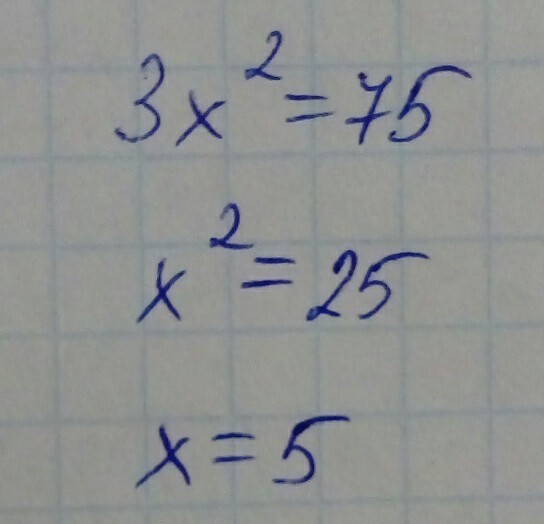 3x² = 75
x² = 25
x = 5